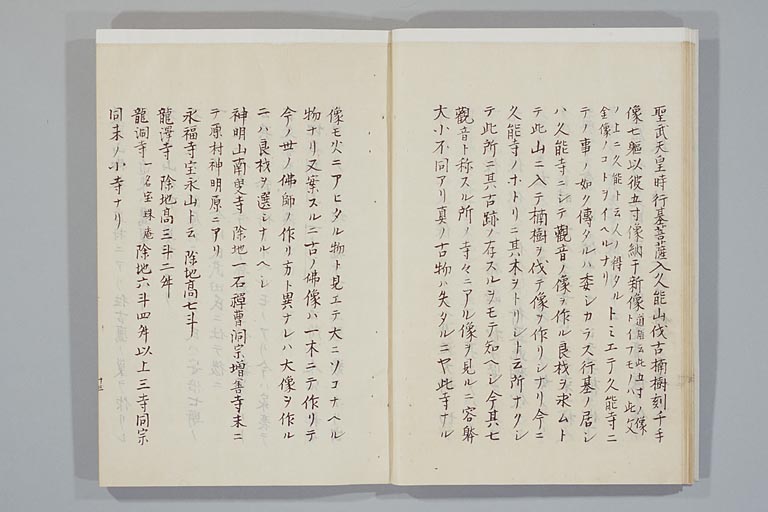 聖武天皇時行基菩薩入久能山伐古楠樹刻千手
像七躯以彼五寸像納于新像道層云此五寸ノ像ト イフモノハ此文
ノ上ニ久能ト云人ノ得タル金像ノコトヲイヘルナリ トミエテ久能寺ニ
テノ事ノ如ク傳タルハ委シカラス行基ノ居シ
ハ久能寺ニシテ觀音ノ像ヲ作ル良材ヲ求ムト
テ此山ニ入テ楠樹ヲ伐テ像ヲ作リシナリ今ニ
久能寺ノホトリニ其木ヲトリシト云所ナクシ
テ此所ニ其古跡ノ存スルヲモテ知ヘシ今其七
觀音ト称スル所ノ寺々ニアル像ヲ見ルニ容躰
大小不同アリ真ノ古物ハ失タルニヤ此寺ナル
像モ火ニアヒタル物ト見エテ大ニソコナヘル
物ナリ又案スルニ古ノ佛像ハ一木ニテ作リテ
今ノ世ノ佛師ノ作リ方ト異ナレハ大像ヲ作ル
ニハ良材ヲ選シナルヘシ
神明山南叟寺 除地一石禅曹洞宗増善寺末ニ
テ原村神明原ニアリ
永福寺宝永山ト云 除地高七斗
龍澤寺 除地高三斗二升
龍洞寺 一名宝珠庵 除地六斗四升以上三寺同宗
同末ノ小寺ナリ